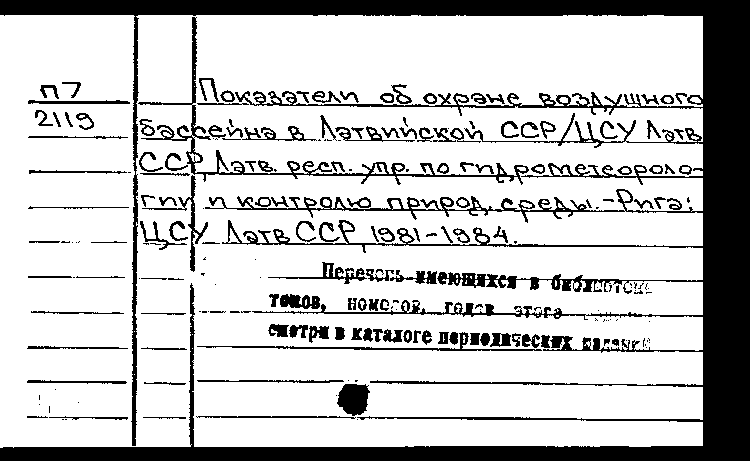 П7
2119
Показатели об охране воздушного
бассейна в Латвийской ССР/ЦСУ Латв
ССР, Латв. респ. упр. по гидрометеороло-
гии и контролю природ, среды.-Рига:
ЦСУ Латв ССР, 1981-1984.
Перечень имеющихся в библиотеке
томов, номеров, годов этого
смотри в каталоге периодических изданий